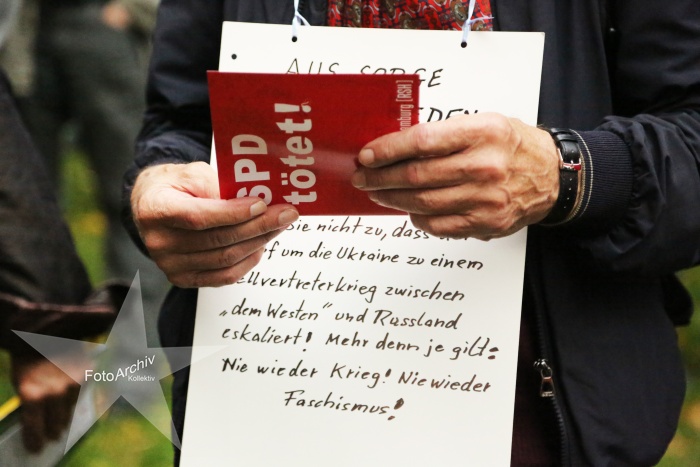 AUS SORGE
SPD
tötet!
Hamburg [RSH]
Sie nicht zu, dass
um die Ukraine zu einem
zwischen
„dem Westen“ und Russland
eskaliert! Mehr denn je gilt:
Nie wieder Krieg! Nie wieder
Faschismus!
FotoArchiv
Kollektiv